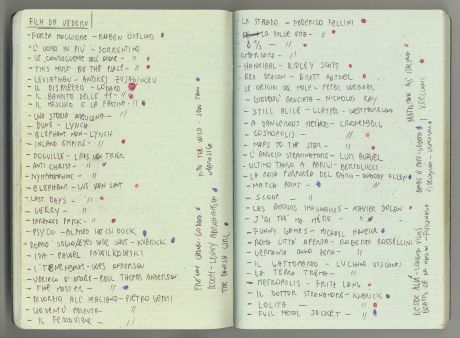 FILM DA VEDERE
- FORZA MAGGIORE - RUBEN ÖSTLUND
- L'UOMO IN PIÙ - SORRENTINO
- LE CONSEGUENZE DELL'AMORE - "
- THIS MUST BE THE PLACE - "
- LEVIATHAN - ANDREJ ZVJAGINCEV
- IL DISPREZZO - GODARD
- IL BANDITO DELLE 11 - "
- IL MASCHIO E LA FEMMINA - "
- UNA STORIA
- DUNE - LYNCH
- ELEPHANT MAN - LYNCH
- INLAND EMPIRE - "
- DOGVILLE - LARS VON TRIER
- ANTICHRIST - "
- NYMPHOMANIAC - "
- ELEPHANT - GUS VAN SANT
- LAST DAYS - "
- GERRY - "
- PARANOID PARK - "
- PSYCO - ALFRED HITCHCOCK
- EYES WIDE SHUT - KUBRICK
- IDA - PAWEL PAWLIKOWSKI
- I TENENBAUM - WES ANDERSON
- VIZIO DI FORMA - PAUL THOMAS ANDERSON
- THE MASTER - "
- DIVORZIO ALL'ITALIANA - PIETRO GERMI
- "
- IL FERROVIERE - "
INTO THE WILD - SEAN PENN
ROOM - LENNY ABRAHAMSON
THE DANISH GIRL
- LA STRADA - FEDERICO FELLINI
- LA DOLCE VITA - "
- 8 1/2 - "
AMARCORD - "
- HANNIBAL - RIDLEY SCOTT
- RED DRAGON - BRETT RATNER
- LE ORIGINI DEL MALE - PETER WEBBER
- GIOVENTÙ BRUCIATA - NICHOLAS RAY
- STILL ALICE - GLATZER, WESTMORELAND
- A DANGEROUS METHOD - CRONENBERG
- COSMOPOLIS - "
- MAPS TO THE STARS - "
- L'ANGELO STERMINATORE - LUIS BUÑUEL
- ULTIMO TANGO A PARIGI - BERTOLUCCI
- LA ROSA PURPUREA DEL CAIRO - WOODY ALLEN
- MATCH POINT - "
- SCOOP - "
- LES AMOURS IMAGINAIRES - XAVIER DOLAN
- J'AI TUÉ MA MÈRE - "
- FUNNY GAMES - MICHAEL HANEKE
- ROMA CITTÀ APERTA - ROBERTO ROSSELLINI
- GERMANIA ANNO ZERO - "
- IL GATTOPARDO - LUCHINO VISCONTI
- LA TERRA TREMA - "
- METROPOLIS - FRITZ LANG
- IL DOTTOR STRANAMORE - KUBRICK
- LOLITA - "
- FULL METAL JACKET - "
MATRIMONIO ALL'ITALIANA